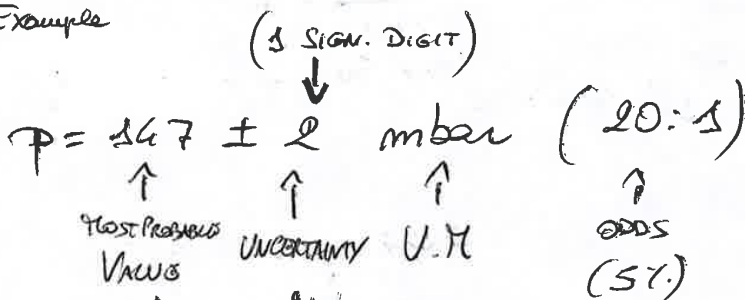 Example
(1 SIGN. DIGIT)
p = 147 ± 2 mbar (20:1)
MOST PROBABLE VALUE
UNCERTAINTY
U.M
ODDS
(5%)